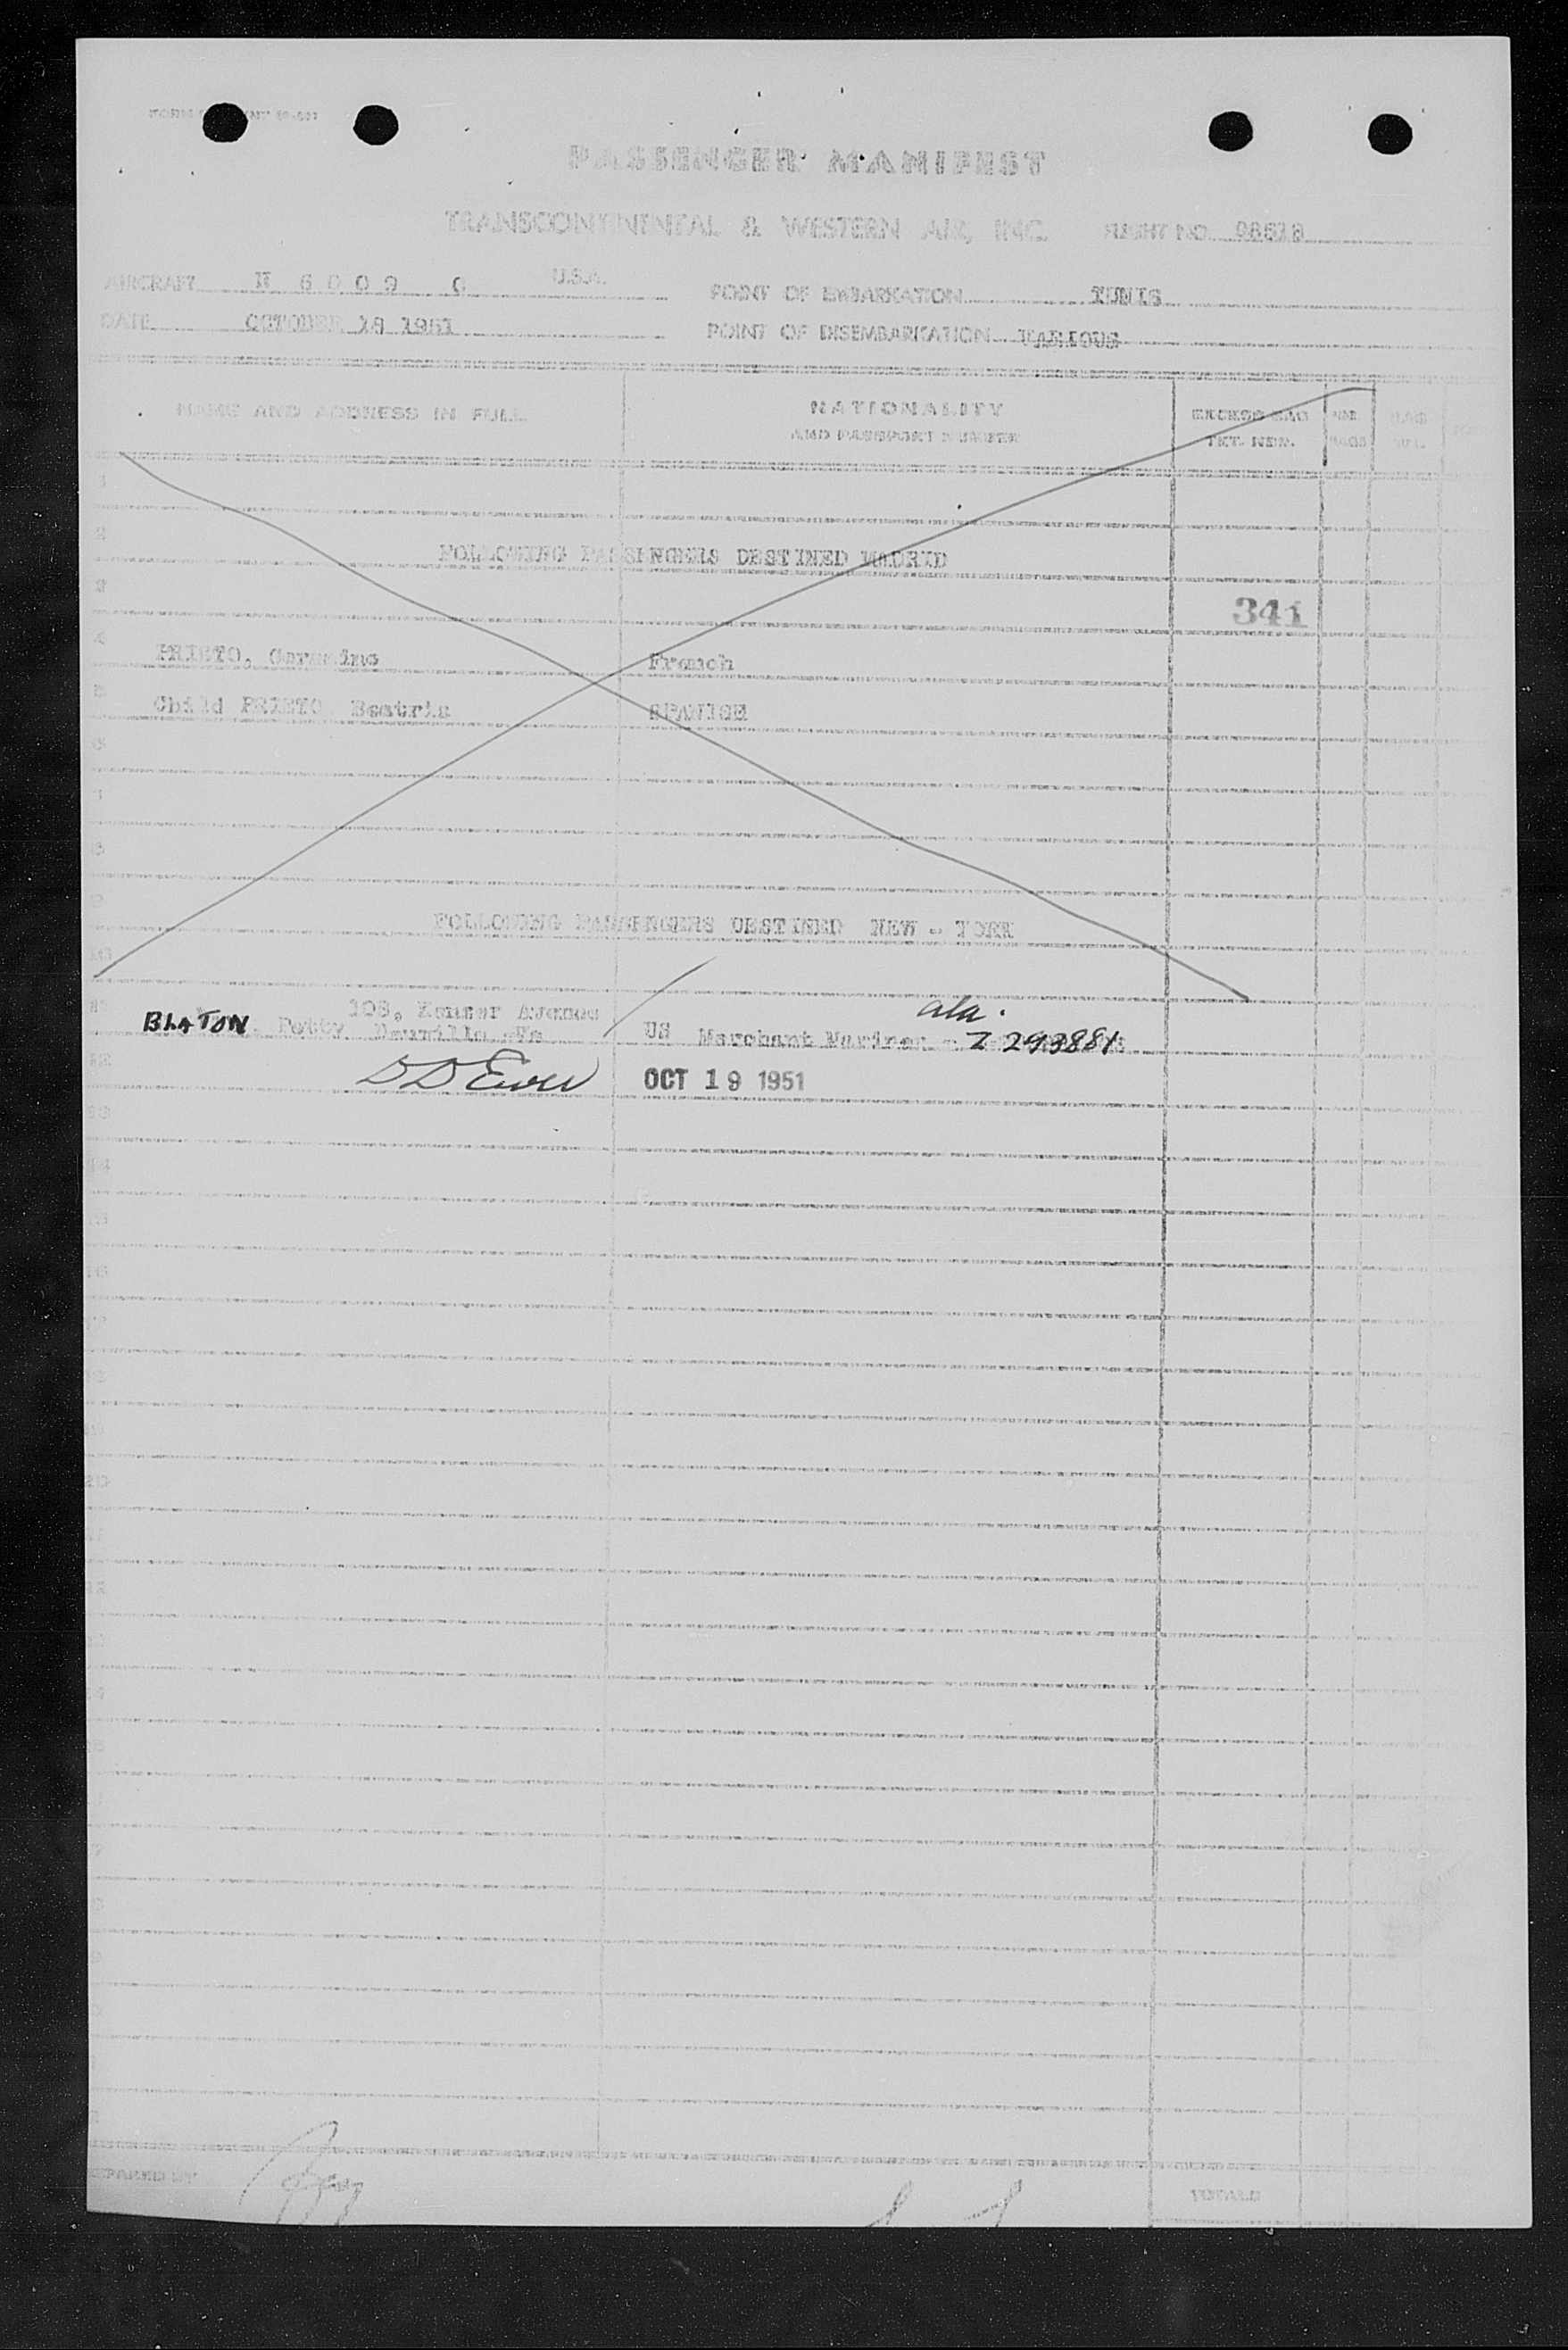 PASSENGER MANIFEST
TRANSCONTINENTAL & WESTERN AIR, INC. FLIGHT NO. 98618
AIRCRAFT N 6009 C U.S.A. POINT OF EMBARKATION TUNIS
DATE OCTOBER 18 1951 POINT OF DISEMBARKATION VARIOUS
NAME AND ADDRESS IN FULL NATIONALITY EXCESS BAG
AND PASSPORT NUMBER TKT. NBR.
FOLLOWING PASSENGERS DESTINED MADRID
341
PRIETO, French
Child PRIETO Beatriz SPANISH
FOLLOWING PASSENGERS DESTINED NEW - YORK
108, Avenue ala.
BLATON US Merchant Mariner - Z 293881
OCT 19 1951
PREPARED BY
TOTALS